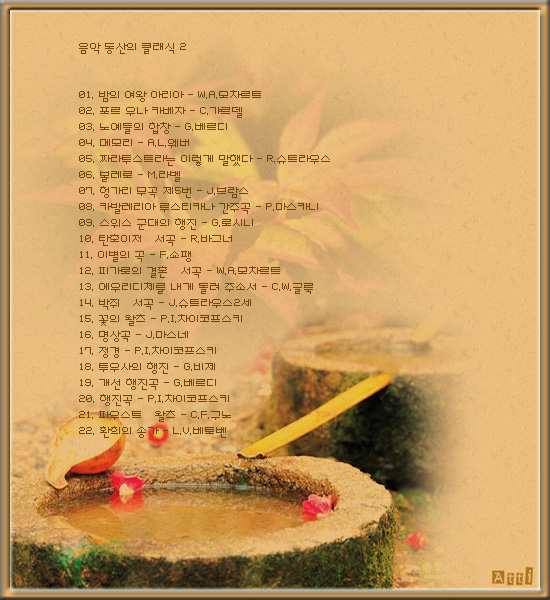 음악 동산의 클래식 2
01. 밤의 여왕 아리아 - W.A.모차르트
02. 포르 우나 카베자 - C.가르델
03. 노예들의 합창 - G.베르디
04. 메모리 - A.L.웨버
05. 짜라투스트라는 이렇게 말했다 - R.슈트라우스
06. 볼레로 - M.라벨
07. 헝가리 무곡 제5번 - J.브람스
08. 카발레리아 루스티카나 간주곡 - P.마스카니
09. 스위스 군대의 행진 - G.로시니
10. 탄호이저 서곡 - R.바그너
11. 이별의 곡 - F.쇼팽
12. 피가로의 결혼 서곡 - W.A.모차르트
13. 에우리디체를 내게 돌려 주소서 - C.W.글룩
14. 박쥐 서곡 - J.슈트라우스2세
15. 꽃의 왈츠 - P.I.차이코프스키
16. 명상곡 - J.마스네
17. 정경 - P.I.차이코프스키
18. 투우사의 행진 - G.비제
19. 개선 행진곡 - G.베르디
20. 행진곡 - P.I.차이코프스키
21. 파우스트 왈츠 - C.F.구노
22. 환희의 송가 - L.V.베토벤
Atti